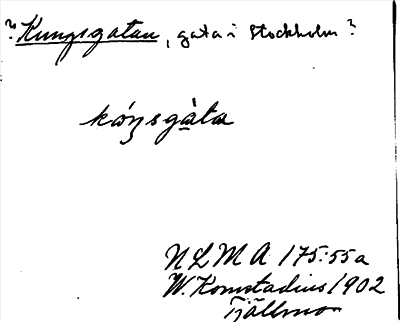 ? Kungsgatan, gata i Stockholm?
kóŋsgàta
NLMA 175:55a
W. Komstadius 1902
Tjällmo